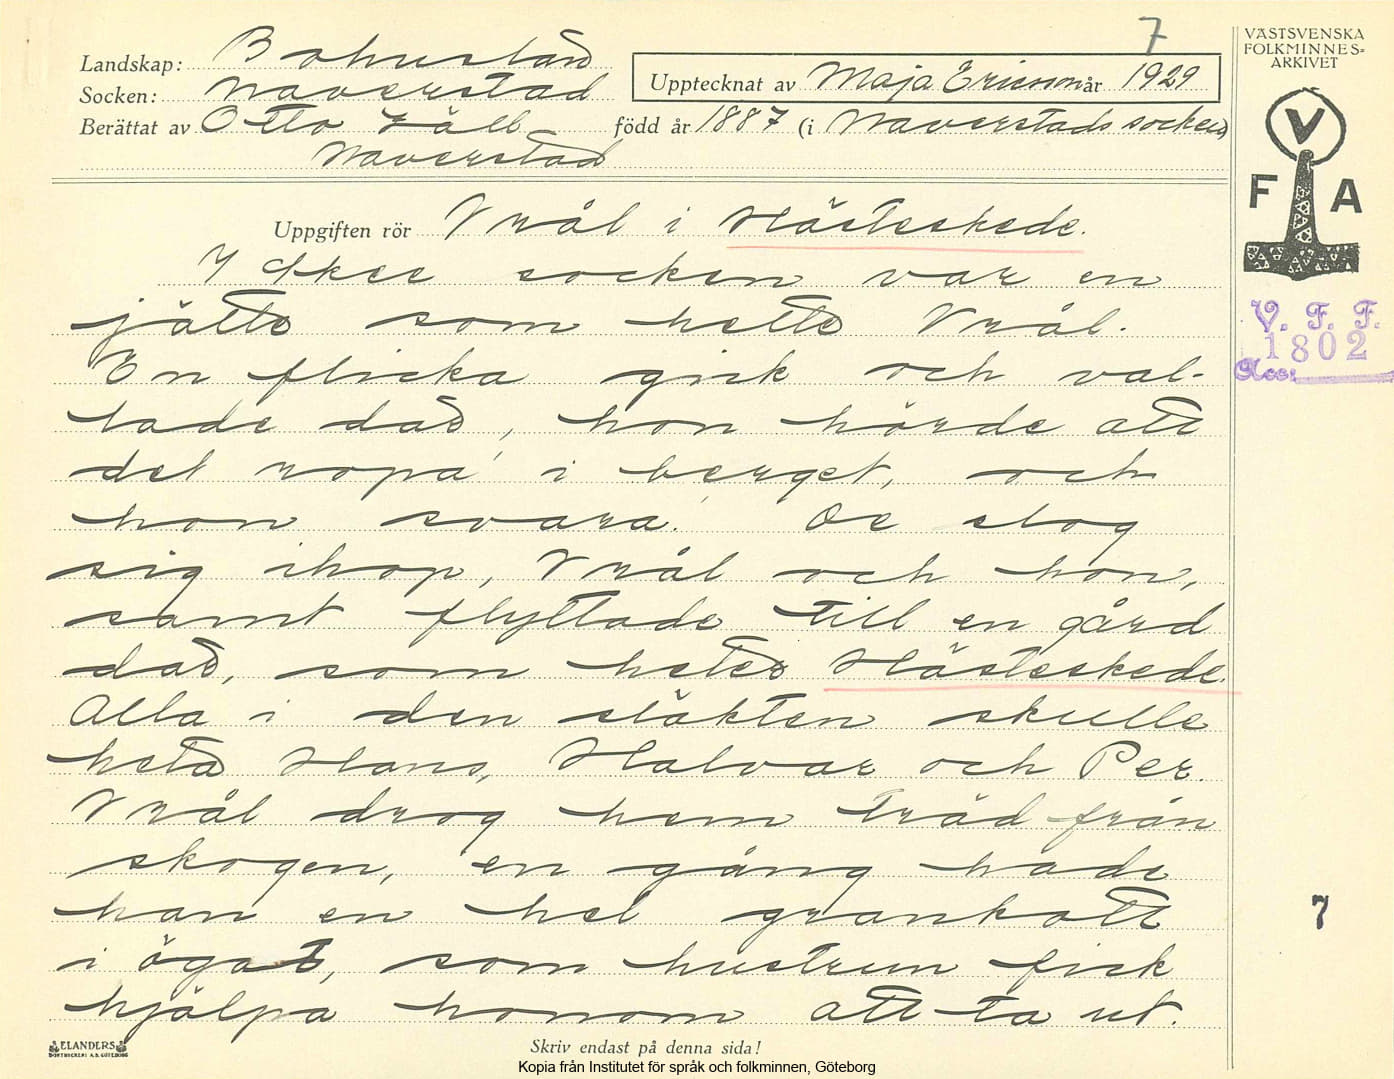 7
Landskap: Bohuslän
Socken: Naverstad
Upptecknat av Maja Ericson år 1929
Berättat av Otto Häll
född år 1887 (i Naverstads socken)
Naverstad
VÄSTSVENSKA
FOLKMINNES=
ARKIVET
V
F A
V. F. F.
1802
Acc:
Uppgiften rör Vrål i Hästeskede.
I Skee socken var en
jätte som hette Vrål.
En flicka gick och val-
lade där, hon hörde att
det ropa' i berget, och
hon svara'. De slog
sig ihop, Vrål och hon,
samt flyttade till en gård
där, som heter Hästeskede.
Alla i den släkten skulle
heta Hans, Halvar och Per.
Vrål drog hem träd från
skogen, en gång hade
han en hel grankott
i ögat, som hustrun fick
hjälpa honom att ta ut.
7
ELANDERS
BOKTRYCKERI A.B. GÖTEBORG
Skriv endast på denna sida!
Kopia från Institutet för språk och folkminnen, Göteborg